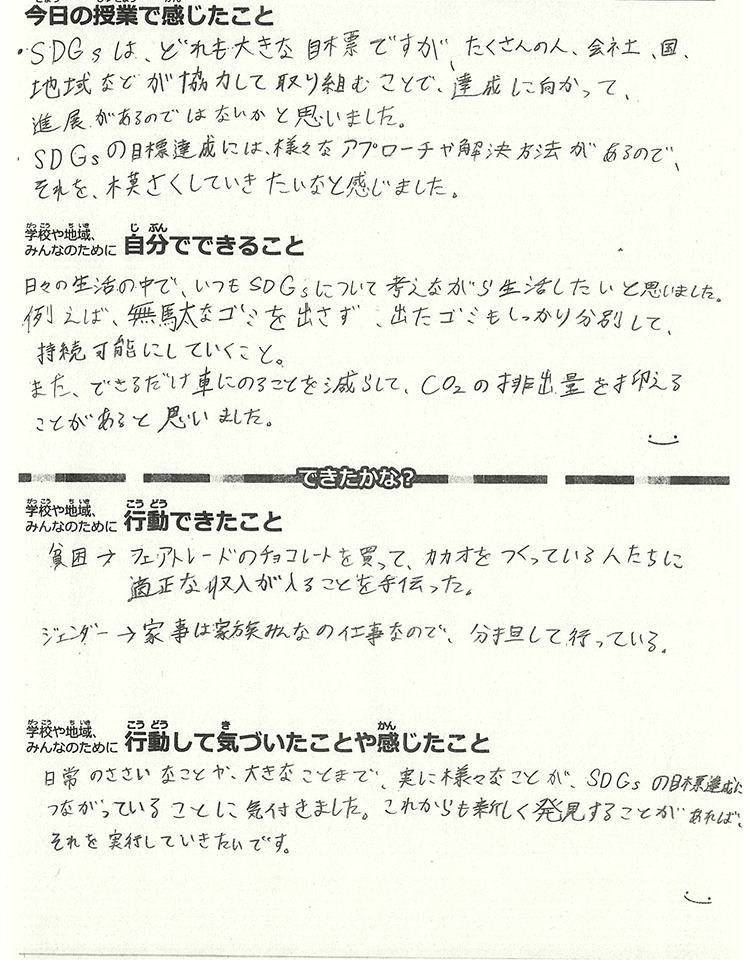 今日の授業で感じたこと
・SDGsは、どれも大きな目標ですが、たくさんの人、会社、国、
地域などが協力して取り組むことで、達成に向かって、
進展があるのではないかと思いました。
・SDGsの目標達成には、様々なアプローチや解決方法があるので、
それを、模さくしていきたいなと感じました。
学校や地域、
みんなのために 自分でできること
日々の生活の中で、いつもSDGsについて考えながら生活したいと思いました。
例えば、無駄なゴミを出さず、出たゴミもしっかり分別して、
持続可能にしていくこと。
また、できるだけ車にのることを減らして、CO2の排出量を抑える
ことがあると思いました。
できたかな?
学校や地域、
みんなのために 行動できたこと
貧困→フェアトレードのチョコレートを買って、カカオをつくっている人たちに
適正な収入が入ることを手伝った。
ジェンダー→家事は家族みんなの仕事なので、分担して行っている。
学校や地域、
みんなのために 行動して気づいたことや感じたこと
日常のささいなことか、大きなことまで、実に様々なことが、SDGsの目標達成に
つながっていることに気付きました。これからも新しく発見することがあれば、
それを実行していきたいです。